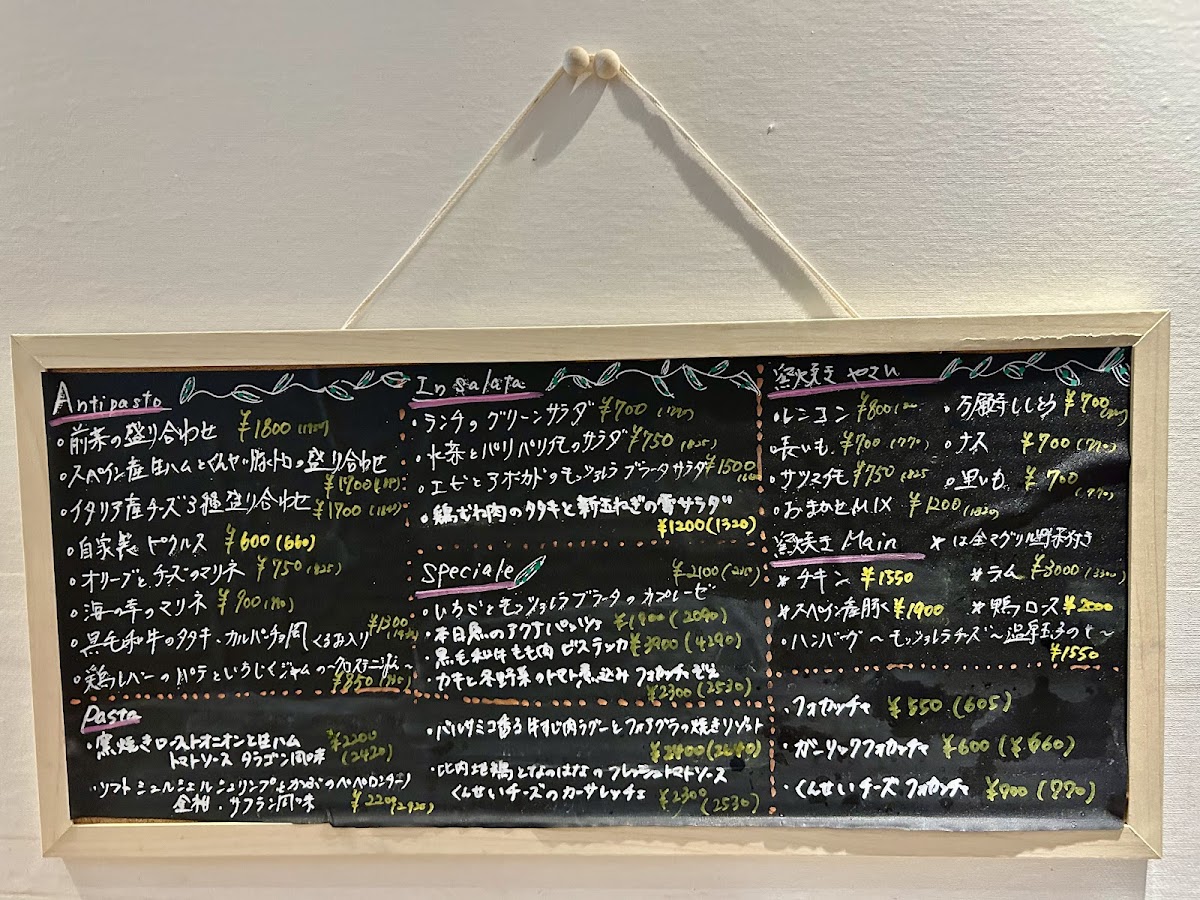 Antipasto
・前菜の盛り合わせ ¥1800
・スペイン産生ハムと の盛り合わせ
¥1700
・イタリア産チーズ3種盛り合わせ ¥1700
・自家製ピクルス ¥600(660)
・オリーブとチーズのマリネ ¥750(825)
・海の幸のマリネ ¥900
・黒毛和牛のタタキ・カルパッチョ風 くるみ入り ¥1300
・鶏レバーのパテといちじくジャムの
¥850
Pasta
・窯焼きローストオニオンと生ハム ¥2200
トマトソース タラゴン風味 (2420)
・ソフトシェルシュリンプと のペペロンチーノ
金柑・サフラン風味 ¥2200(2420)
Insalata
・ランチのグリーンサラダ ¥700
・水菜とパリパリ のサラダ ¥750(825)
・エビとアボカドのモッツァレラブラータサラダ ¥1500
・鶏むね肉のタタキと新玉ねぎの雪サラダ
¥1200(1320)
Speciale ¥2100
・いちごとモッツァレラブラータのカプレーゼ
・本日魚のアクアパッツァ ¥1900(2090)
・黒毛和牛もも肉 ビステッカ ¥3900(4290)
・カキと冬野菜のトマト煮込み フォカッチャぞえ
¥2300(2530)
・バルサミコ香る牛すじ肉ラグーとフォアグラの焼きリゾット
¥2400(2640)
・比内地鶏となのはなのフレッシュトマトソース
くんせいチーズのカーサレッチェ ¥2300(2530)
釜焼きやさい
・レンコン ¥800 ・万願寺ししとう ¥700
・長いも ¥700(770) ・ナス ¥700(770)
・サツマイモ ¥750(825 ・里いも ¥700(770)
・おまかせMIX ¥1200
釜焼きMain ＊は全てグリル野菜付き
＊チキン ¥1550 ＊ラム ¥3000(3300)
＊スペイン産豚 ¥1900 ＊鴨ロース ¥2000
・ハンバーグ～モッツァレラチーズ～温玉 ～
¥1550
・フォカッチャ ¥550(605)
・ガーリックフォカッチャ ¥600(¥660)
・くんせいチーズフォカッチャ ¥700(770)